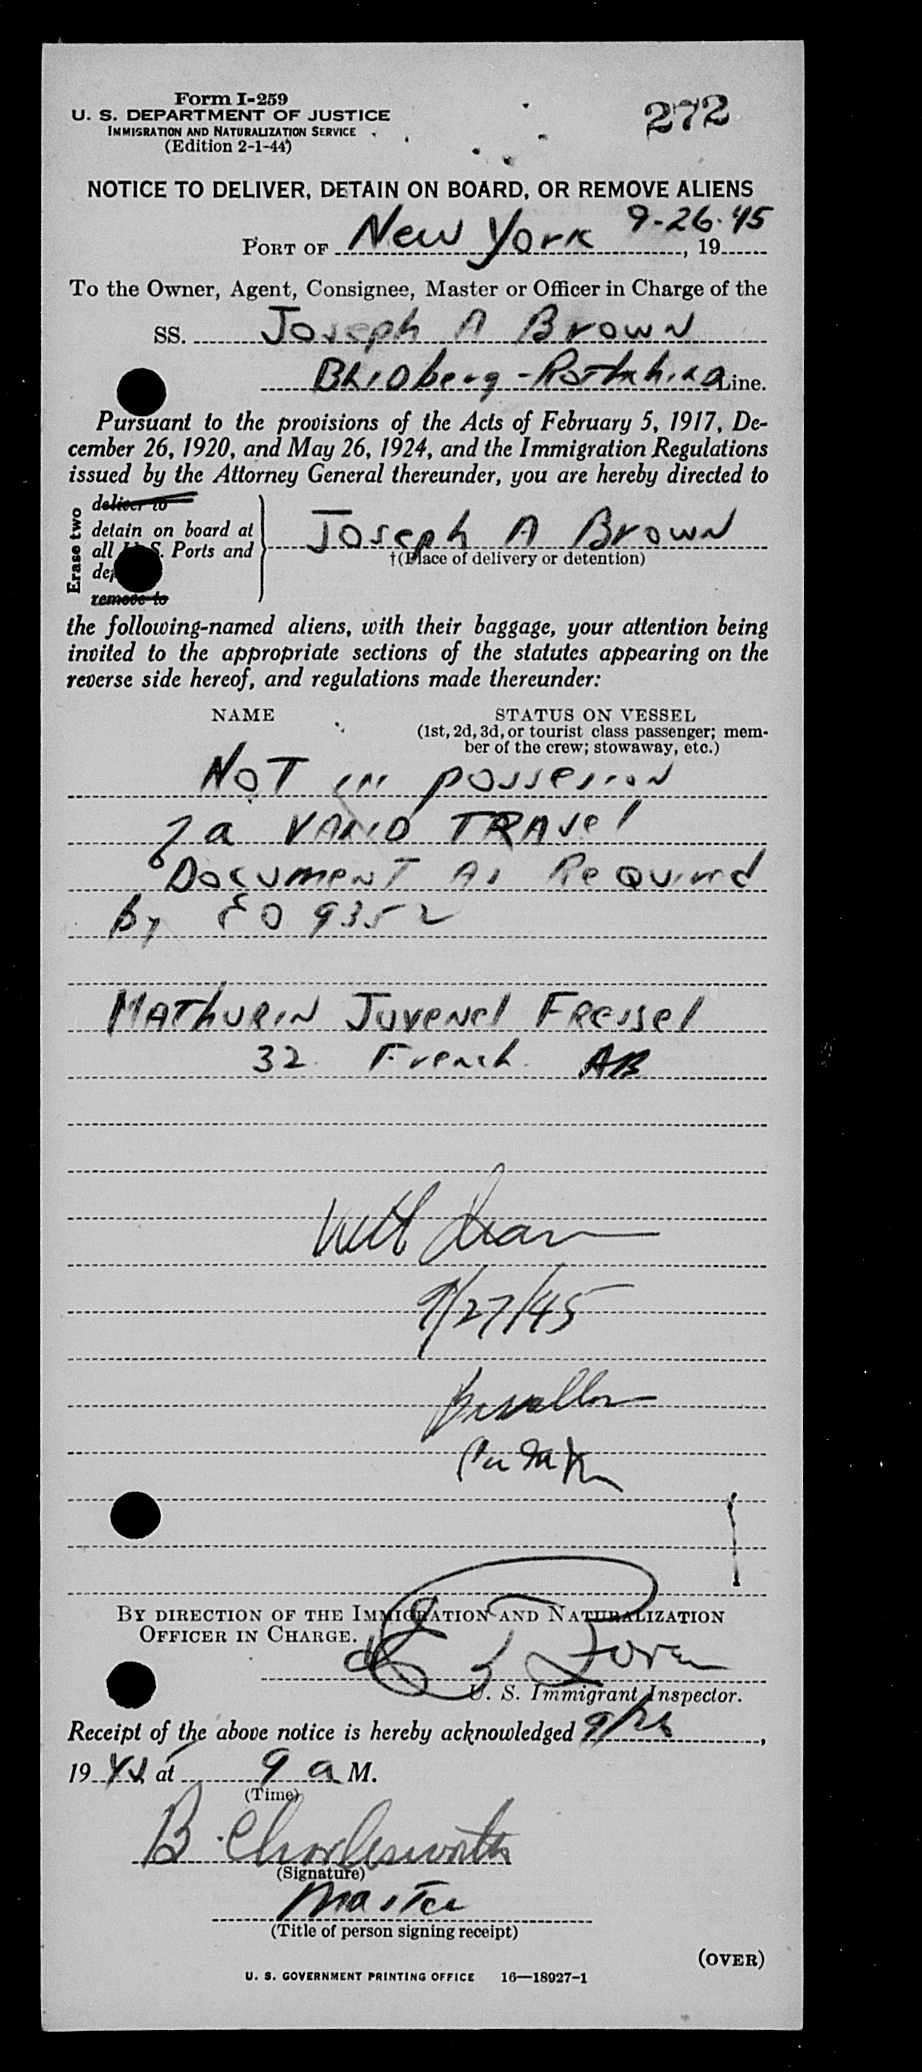 Form I-259
U. S. DEPARTMENT OF JUSTICE
IMMIGRATION AND NATURALIZATION SERVICE
(Edition 2-1-44)
272
NOTICE TO DELIVER, DETAIN ON BOARD, OR REMOVE ALIENS
PORT OF New York 9-26-45, 19
To the Owner, Agent, Consignee, Master or Officer in Charge of the
SS. Joseph A Brown
Line.
Pursuant to the provisions of the Acts of February 5, 1917, De-
cember 26, 1920, and May 26, 1924, and the Immigration Regulations
issued by the Attorney General thereunder, you are hereby directed to
Erase two
deliver to
detain on board at
all U. S. Ports and
remove to
Joseph A Brown
†(Place of delivery or detention)
the following-named aliens, with their baggage, your attention being
invited to the appropriate sections of the statutes appearing on the
reverse side hereof, and regulations made thereunder:
NAME STATUS ON VESSEL
(1st, 2d, 3d, or tourist class passenger; mem-
ber of the crew; stowaway, etc.)
NOT in possesion
of a VALID TRAVel
DocumenT As Required
By EO 9352
MAThURIN Juvenel FRessel
32 French AB
9/27/45
BY DIRECTION OF THE IMMIGRATION AND NATURALIZATION
OFFICER IN CHARGE.
U. S. Immigrant Inspector.
Receipt of the above notice is hereby acknowledged 9/26,
1945, at 9 a M.
(Time)
B. Charlesworth
(Signature)
Master
(Title of person signing receipt)
(OVER)
U. S. GOVERNMENT PRINTING OFFICE 16—18927-1